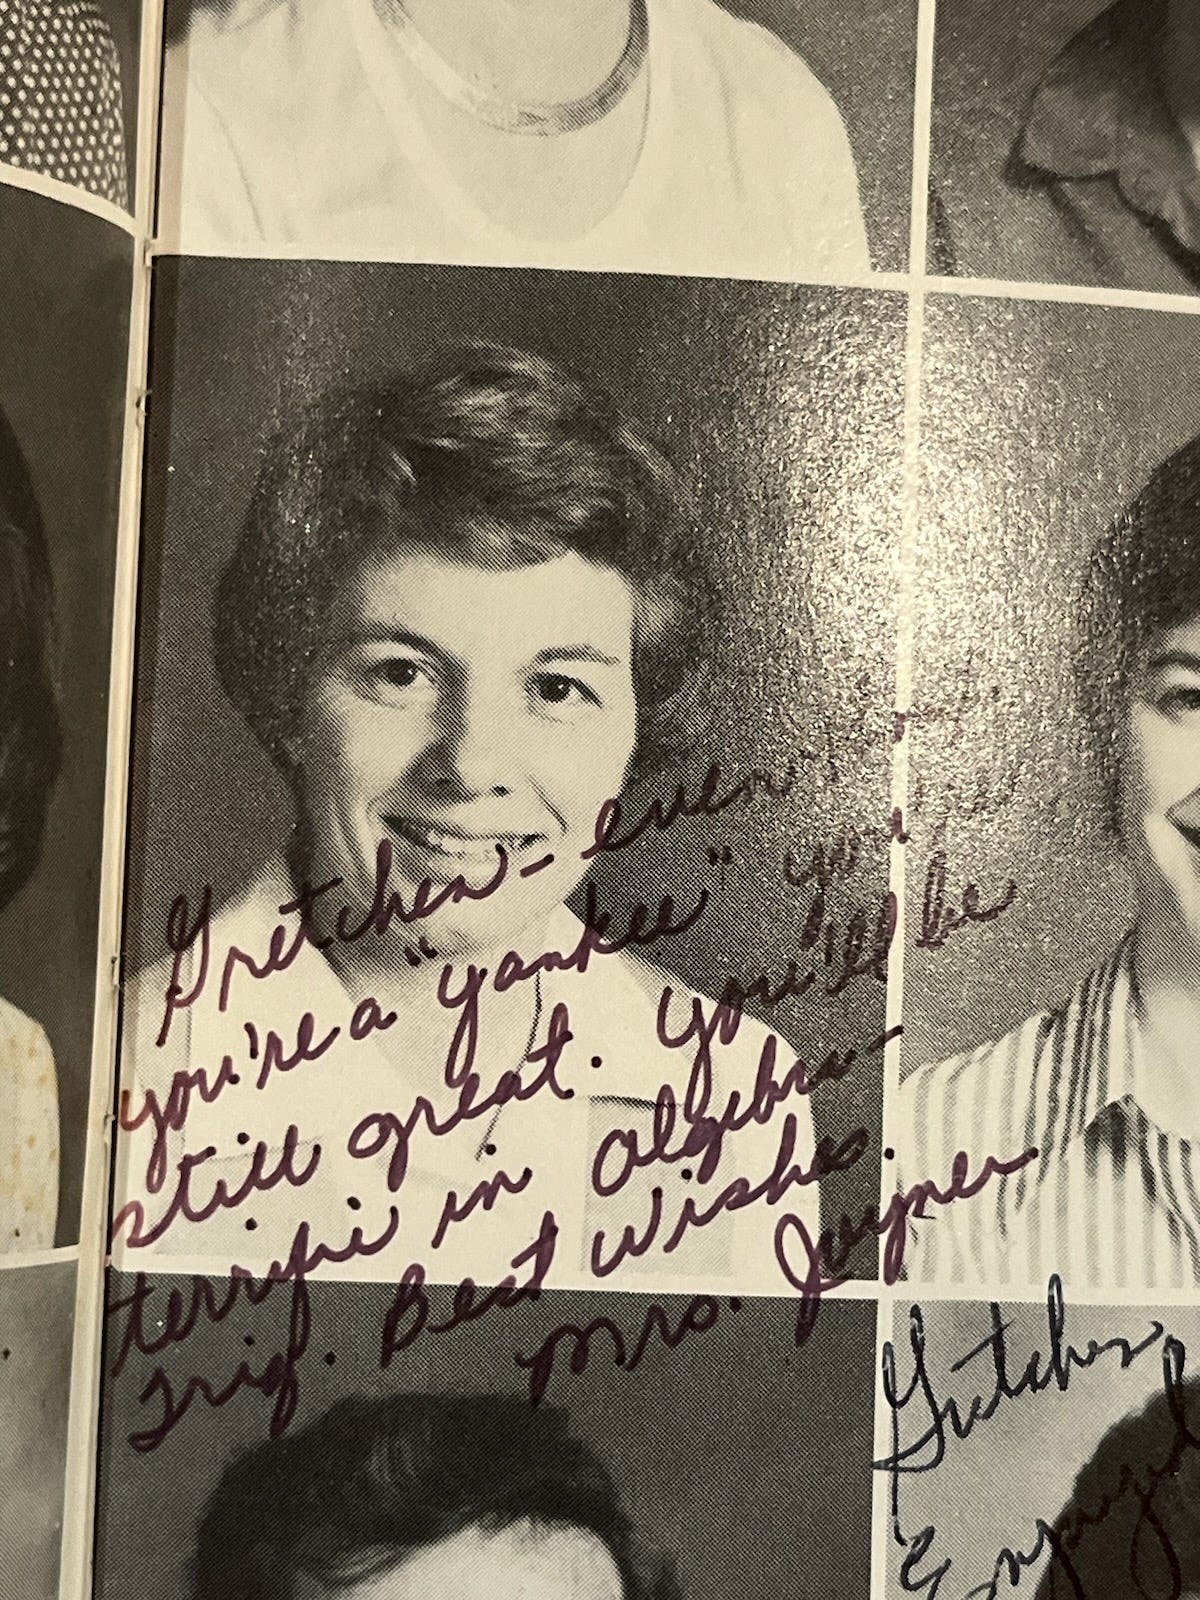 Gretchen - even
you're a "yankee" you
still great. You'll be
terrific in algebra -
Trig. Best Wishes.
Mrs. Joyner
Gretchen,
Enjoyed